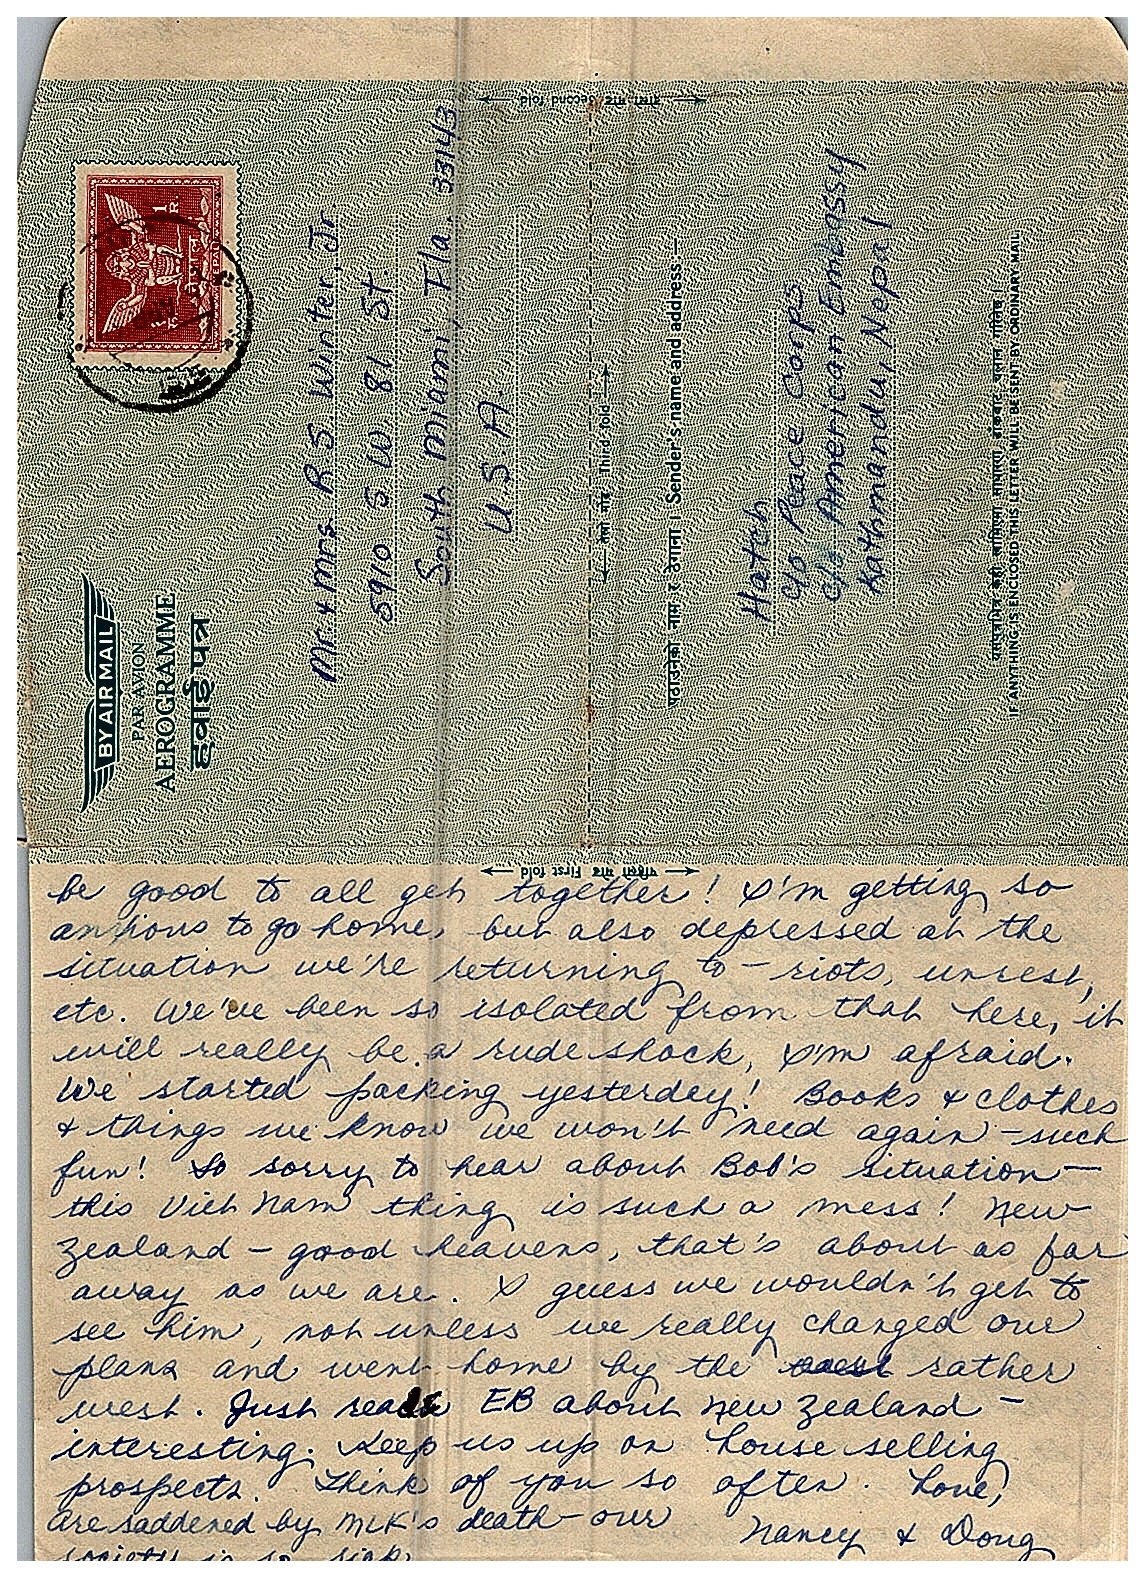 BY AIR MAIL
PAR AVION
AEROGRAMME
हवाई पत्र
Mr. & Mrs. R S. Winter, Jr.
5910 S. W. 81 St.
South Miami, Fla. 33143
U. S. A
दोस्रो मोड Second fold
तेस्रो मोड Third fold
पठाउनेको नाम र ठेगाना। Sender's name and address —
Hatch
c/o Peace Corps
c/o American Embassy
Kathmandu, Nepal
IF ANYTHING IS ENCLOSED THIS LETTER WILL BE SENT BY ORDINARY MAIL
पहिलो मोड First fold
be good to all get together! I'm getting so
anxious to go home, but also depressed at the
situation we're returning to — riots, unrest,
etc. We've been so isolated from that here, it
will really be a rude shock, I'm afraid.
We started packing yesterdey! Books & clothes
& things we know we won't need again — such
fun! So sorry to hear about Bob's situation —
this Viet Nam thing is such a mess! New
Zealand — good heavens, that's about as far
away as we are. I guess we wouldn't get to
see him, not unless we really changed our
plans and went home by the rather
west. Just read EB about New Zealand —
interesting. Keep us up on house selling
prospects. Think of you so often. Love,
are saddened by MLK's death — our Nancy & Doug
society is so sick